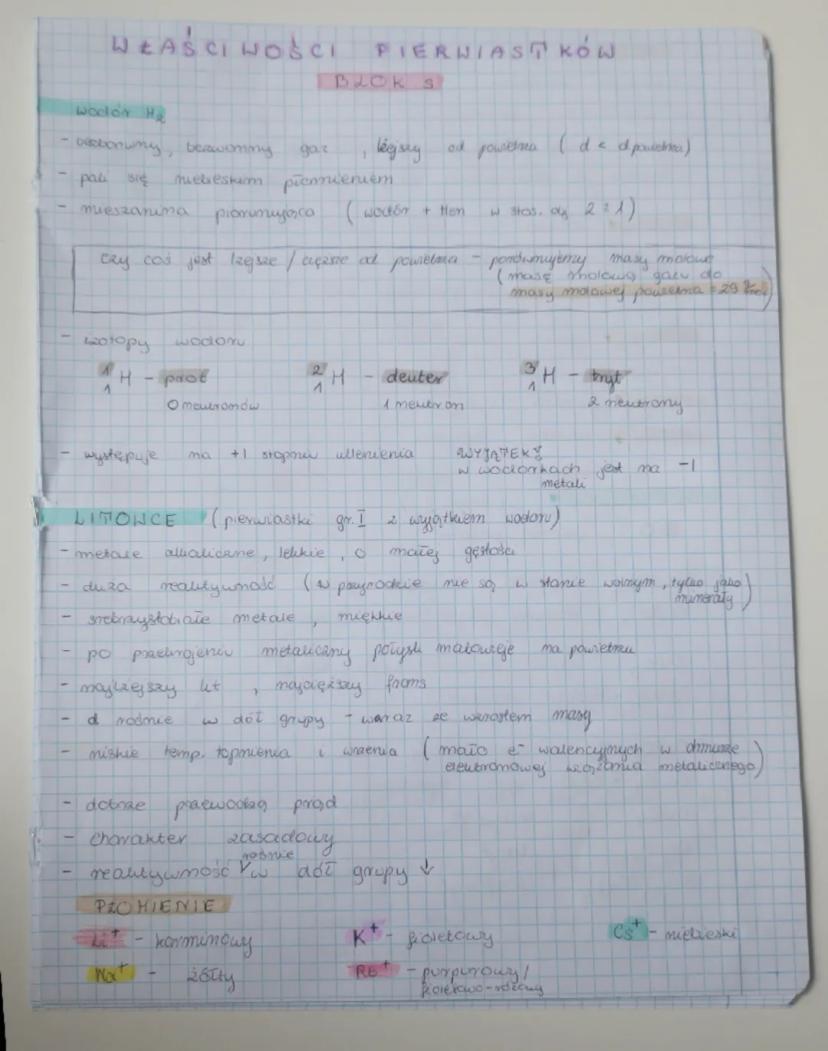 WŁAŚCIWOŚCI PIERWIASTKÓW
BLOK s
Wodór H₂
- bezbarwny, bezwonny gaz, lżejszy od powietrza (d < d powietrza)
- pali się niebieskim płomieniem
- mieszanina piorunująca (wodór + tlen w stos. obj. 2:1)
Czy coś jest lżejsze / cięższe od powietrza - porównujemy masy molowe
(masę molową gazu do
masy molowej powietrza = 29 g/mol)
- izotopy wodoru
¹₁H - prot ²₁H - deuter ³₁H - tryt
0 neutronów 1 neutron 2 neutrony
- występuje na +1 stopniu utlenienia WYJĄTEK!
w wodorkach jest na -1
metali
LITOWCE (pierwiastki gr. I z wyjątkiem wodoru)
- metale alkaliczne, lekkie, o małej gęstości
- duża reaktywność (w przyrodzie nie są w stanie wolnym, tylko jako
minerały)
- srebrzystobiałe metale, miękkie
- po przekrojeniu metaliczny połysk matowieje na powietrzu
- najlżejszy lit, najcięższy frans
- d rośnie w dół grupy - wraz ze wzrostem masy
- niskie temp. topnienia i wrzenia (mało e⁻ walencyjnych w chmurze
elektronowej wiązania metalicznego)
- dobrze przewodzą prąd
- charakter zasadowy
- reaktywność rośnie w dół grupy ↓
PŁOMIENIE
Li⁺ - karminowy K⁺ - fioletowy Cs⁺ - niebieski
Na⁺ - żółty Rb⁺ - purpurowy /
fioletowo-różowy